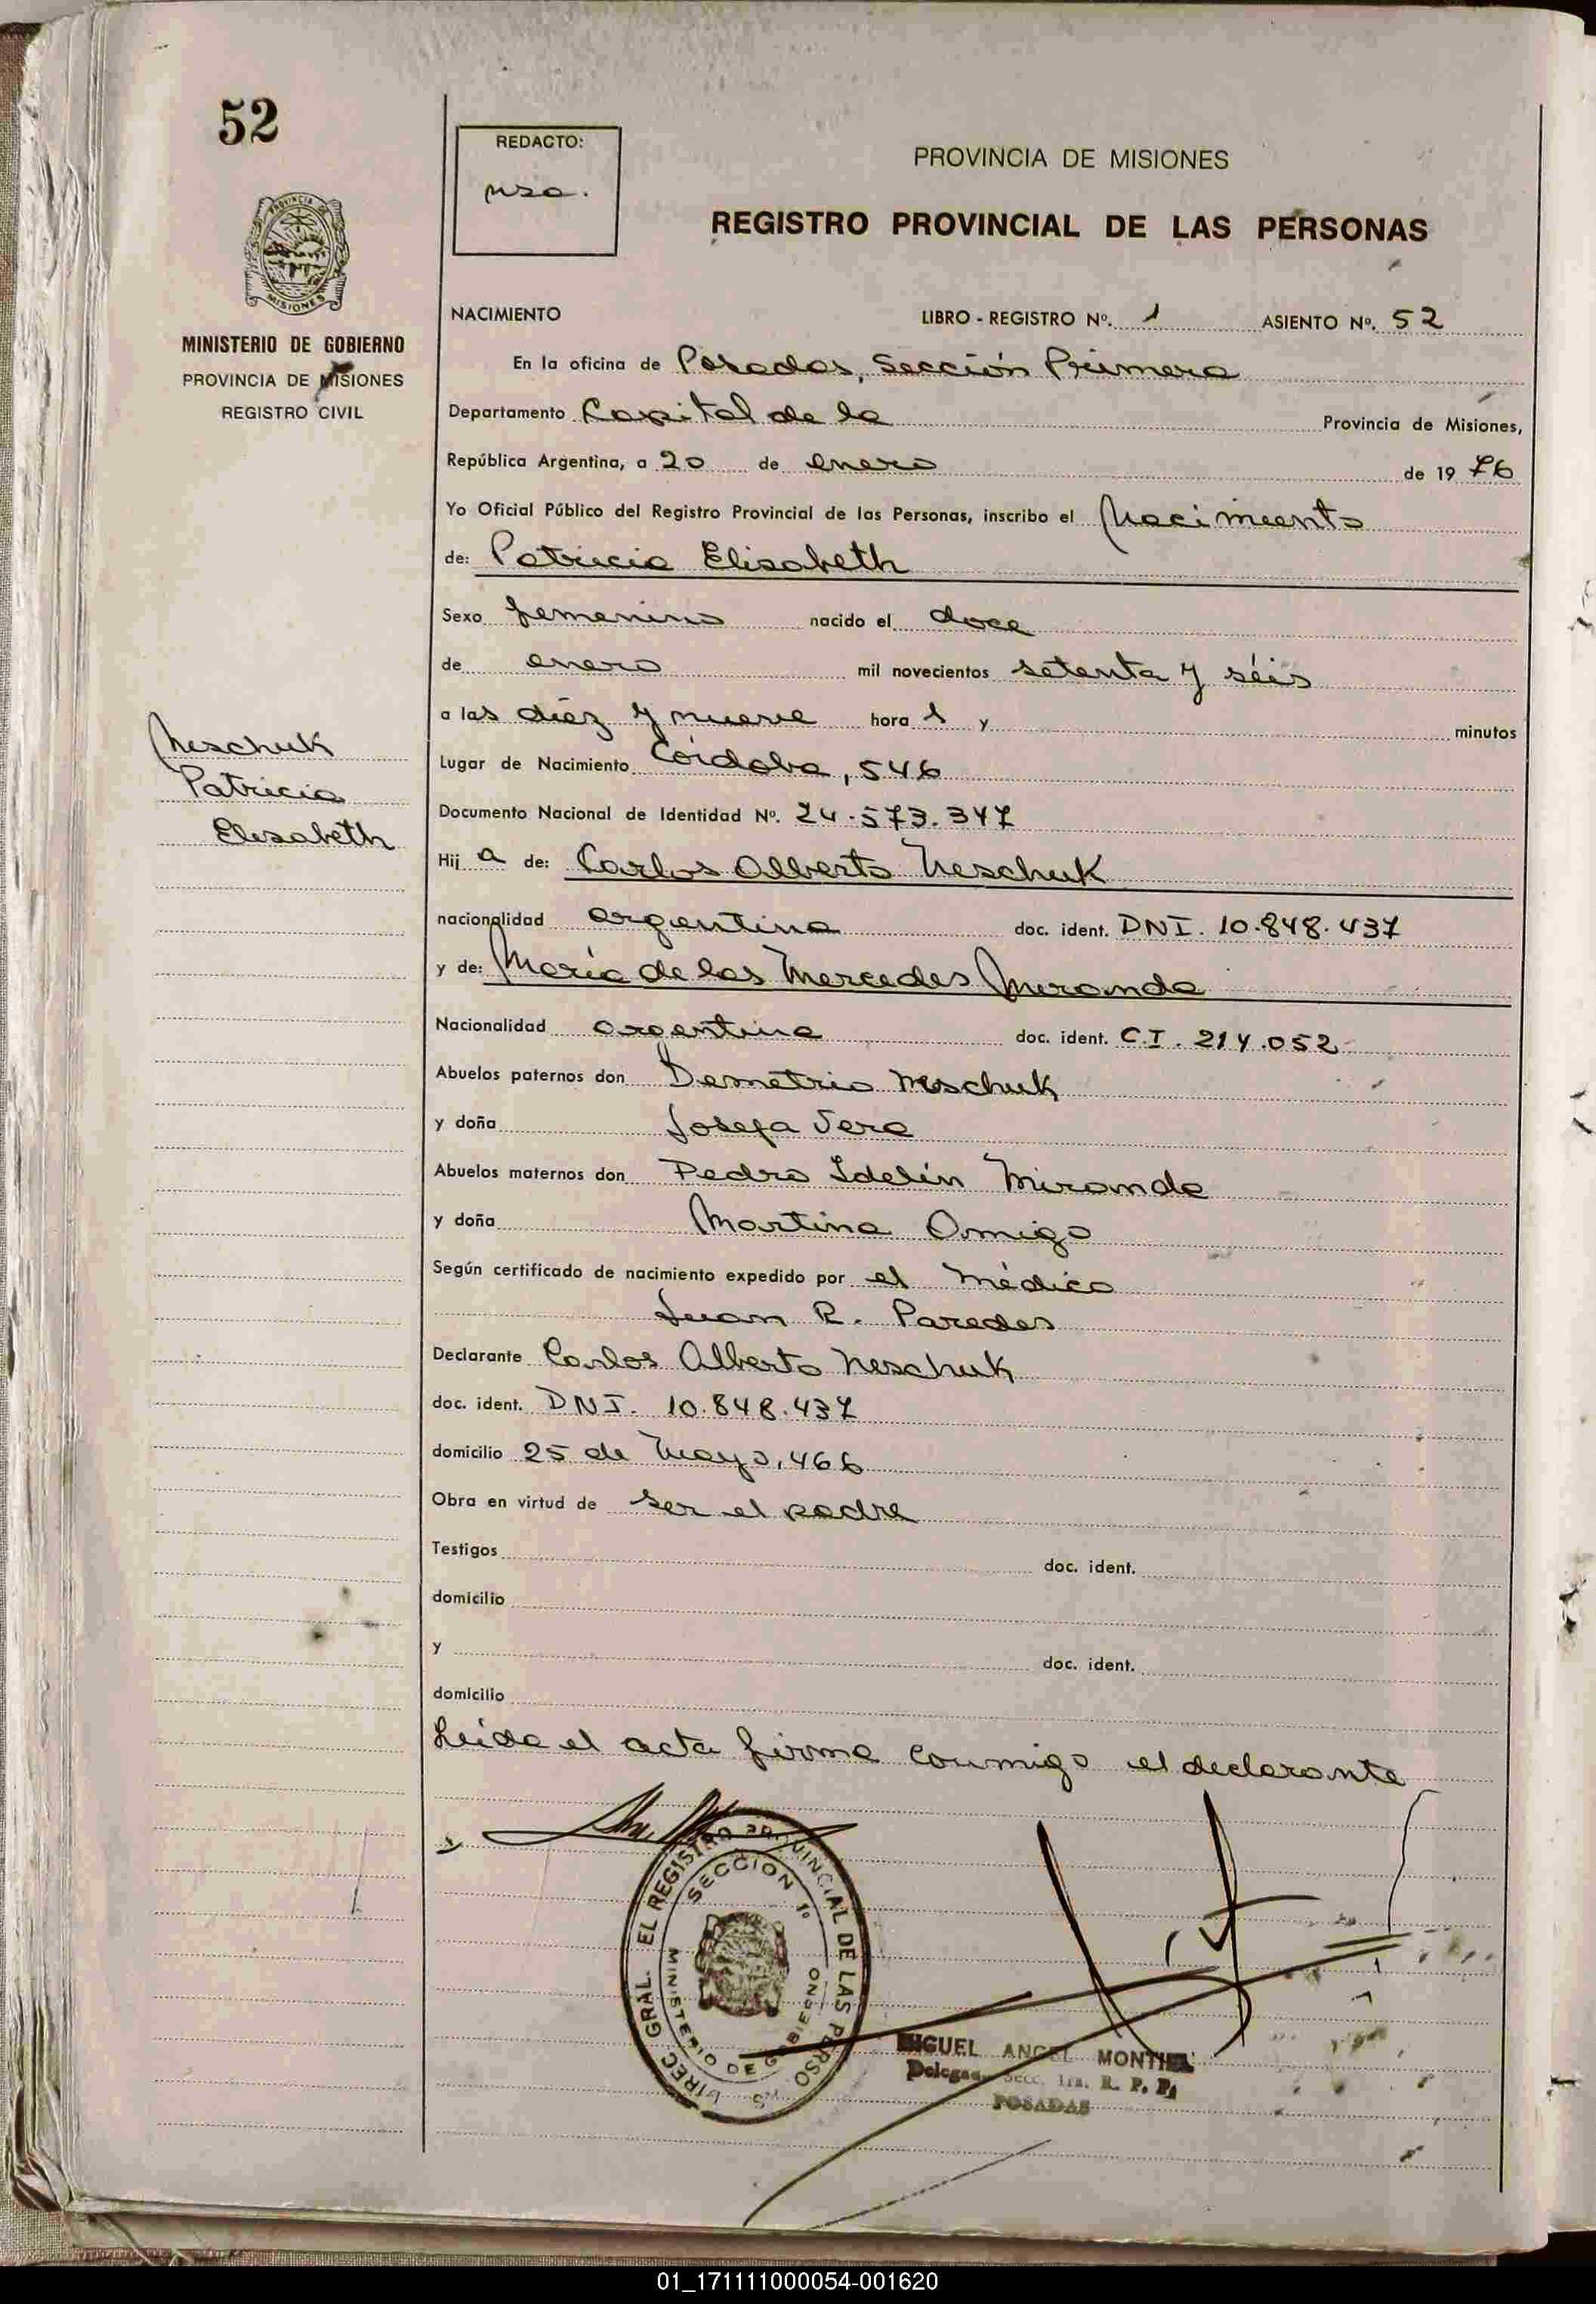 52
REDACTO:
PROVINCIA DE MISIONES
REGISTRO PROVINCIAL DE LAS PERSONAS
PROVINCIA DE
MISIONES
MINISTERIO DE GOBIERNO
PROVINCIA DE MISIONES
REGISTRO CIVIL
NACIMIENTO LIBRO - REGISTRO Nº. 1 ASIENTO Nº. 52
En la oficina de Posadas, Sección Primera
Departamento Capital de la Provincia de Misiones,
República Argentina, a 20 de enero de 19 76
Yo Oficial Público del Registro Provincial de las Personas, inscribo el Nacimiento
de: Patricia Elisabeth
Sexo femenino nacido el doce
de enero mil novecientos setenta y séis
a las diéz y nueve hora s y minutos
Lugar de Nacimiento Córdoba, 546
Documento Nacional de Identidad Nº. 24.573.347
Hij a de: Carlos Alberto Neschuk
nacionalidad argentina doc. ident. DNI. 10.848.437
y de: María de las Mercedes Miranda
Nacionalidad argentina doc. ident. C.I. 214.052
Abuelos paternos don Demetrio Neschuk
y doña Josefa Vera
Abuelos maternos don Pedro Idelín Miranda
y doña Martina Amigo
Según certificado de nacimiento expedido por el médico
Juan R. Paredes
Declarante Carlos Alberto Neschuk
doc. ident. DNI. 10.848.437
domicilio 25 de Mayo, 466
Obra en virtud de ser el padre
Testigos doc. ident.
domicilio
y doc. ident.
domicilio
Leida el acta firma conmigo el declarante
Neschuk
Patricia
Elisabeth
DIREC. GRAL. EL REGISTRO PROVINCIAL DE LAS PERSONAS
SECCION 1º
MINISTERIO DE GOBIERNO
MIGUEL ANGEL MONTIEL
Delegado Secc. 1ra. R. P. P.
POSADAS
01_171111000054-001620